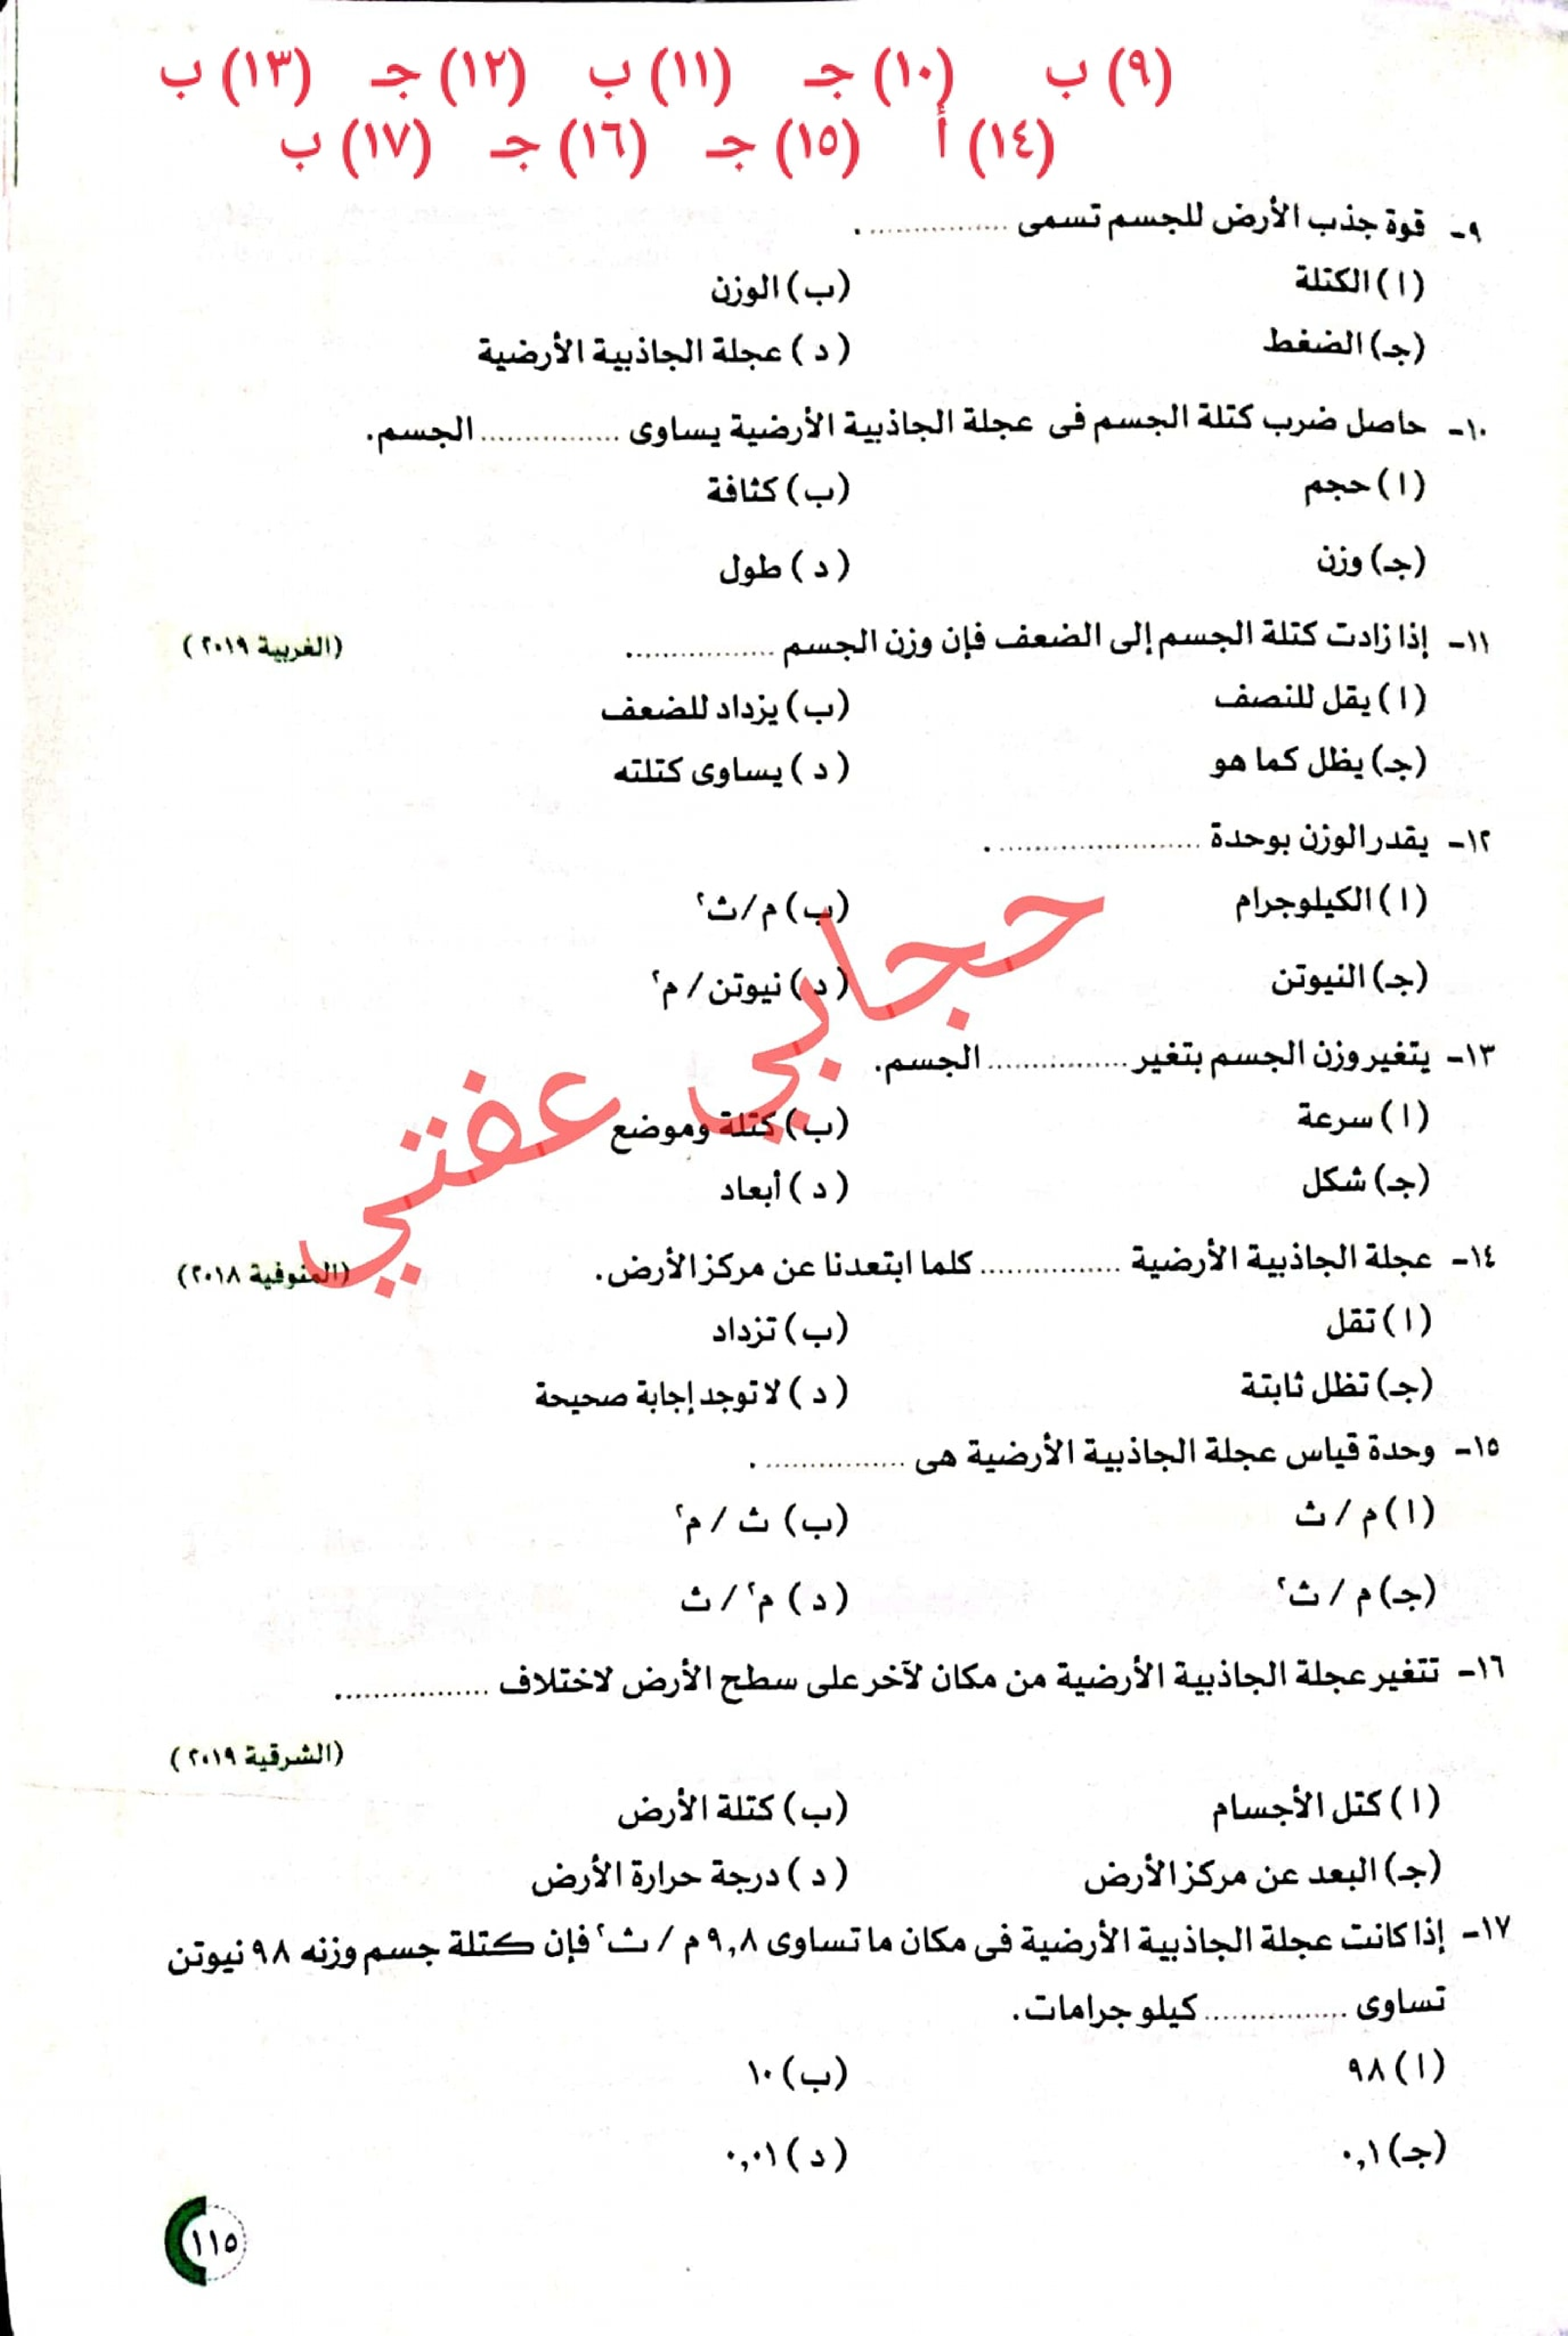 (٩) ب (١٠) جـ (١١) ب (١٢) جـ (١٣) ب
(١٤) أ (١٥) جـ (١٦) جـ (١٧) ب
٩- قوة جذب الأرض للجسم تسمى ................ .
(ا) الكتلة (ب) الوزن
(جـ) الضغط (د) عجلة الجاذبية الأرضية
١٠- حاصل ضرب كتلة الجسم فى عجلة الجاذبية الأرضية يساوى ................ الجسم.
(ا) حجم (ب) كثافة
(جـ) وزن (د) طول
١١- إذا زادت كتلة الجسم إلى الضعف فإن وزن الجسم ................. (الغربية ٢٠١٩)
(ا) يقل للنصف (ب) يزداد للضعف
(جـ) يظل كما هو (د) يساوى كتلته
١٢- يقدر الوزن بوحدة ....................... .
(ا) الكيلوجرام (ب) م/ث٢
(جـ) النيوتن (د) نيوتن / م٢
١٣- يتغير وزن الجسم بتغير ................ الجسم.
(ا) سرعة (ب) كتلة وموضع
(جـ) شكل (د) أبعاد
حجابي عفتي
١٤- عجلة الجاذبية الأرضية ................ كلما ابتعدنا عن مركز الأرض. (المنوفية ٢٠١٨)
(ا) تقل (ب) تزداد
(جـ) تظل ثابتة (د) لا توجد إجابة صحيحة
١٥- وحدة قياس عجلة الجاذبية الأرضية هى ................ .
(ا) م / ث (ب) ث / م٢
(جـ) م / ث٢ (د) م٢ / ث
١٦- تتغير عجلة الجاذبية الأرضية من مكان لآخر على سطح الأرض لاختلاف .................
(الشرقية ٢٠١٩)
(ا) كتل الأجسام (ب) كتلة الأرض
(جـ) البعد عن مركز الأرض (د) درجة حرارة الأرض
١٧- إذا كانت عجلة الجاذبية الأرضية فى مكان ما تساوى ٩,٨ م / ث٢ فإن كتلة جسم وزنه ٩٨ نيوتن
تساوى ................ كيلو جرامات.
(ا) ٩٨ (ب) ١٠
(جـ) ٠,١ (د) ٠,٠١
١١٥